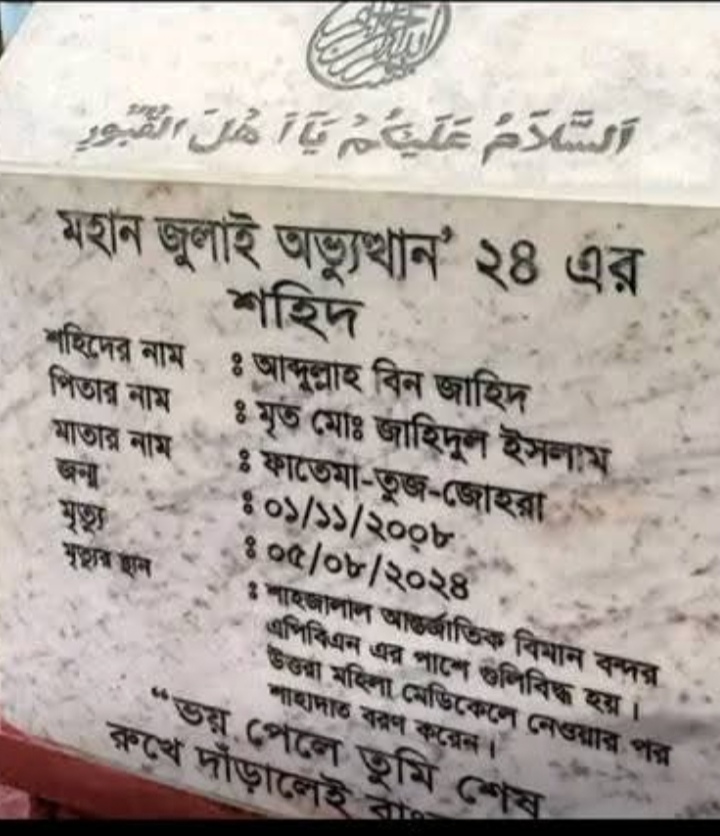 اَلسَّلَامُ عَلَيْكُمْ يَا اَهْلَ الْقُبُوْرِ
মহান জুলাই অভ্যুত্থান' ২৪ এর
শহিদ
শহিদের নাম : আব্দুল্লাহ বিন জাহিদ
পিতার নাম : মৃত মোঃ জাহিদুল ইসলাম
মাতার নাম : ফাতেমা-তুজ-জোহরা
জন্ম : ০১/১১/২০০৮
মৃত্যু : ০৫/০৮/২০২৪
মৃত্যুর স্থান : শাহজালাল আন্তর্জাতিক বিমান বন্দর
এপিবিএন এর পাশে গুলিবিদ্ধ হয়।
উত্তরা মহিলা মেডিকেলে নেওয়ার পর
শাহাদাত বরণ করেন।
“ভয় পেলে তুমি শেষ
রুখে দাঁড়ালেই